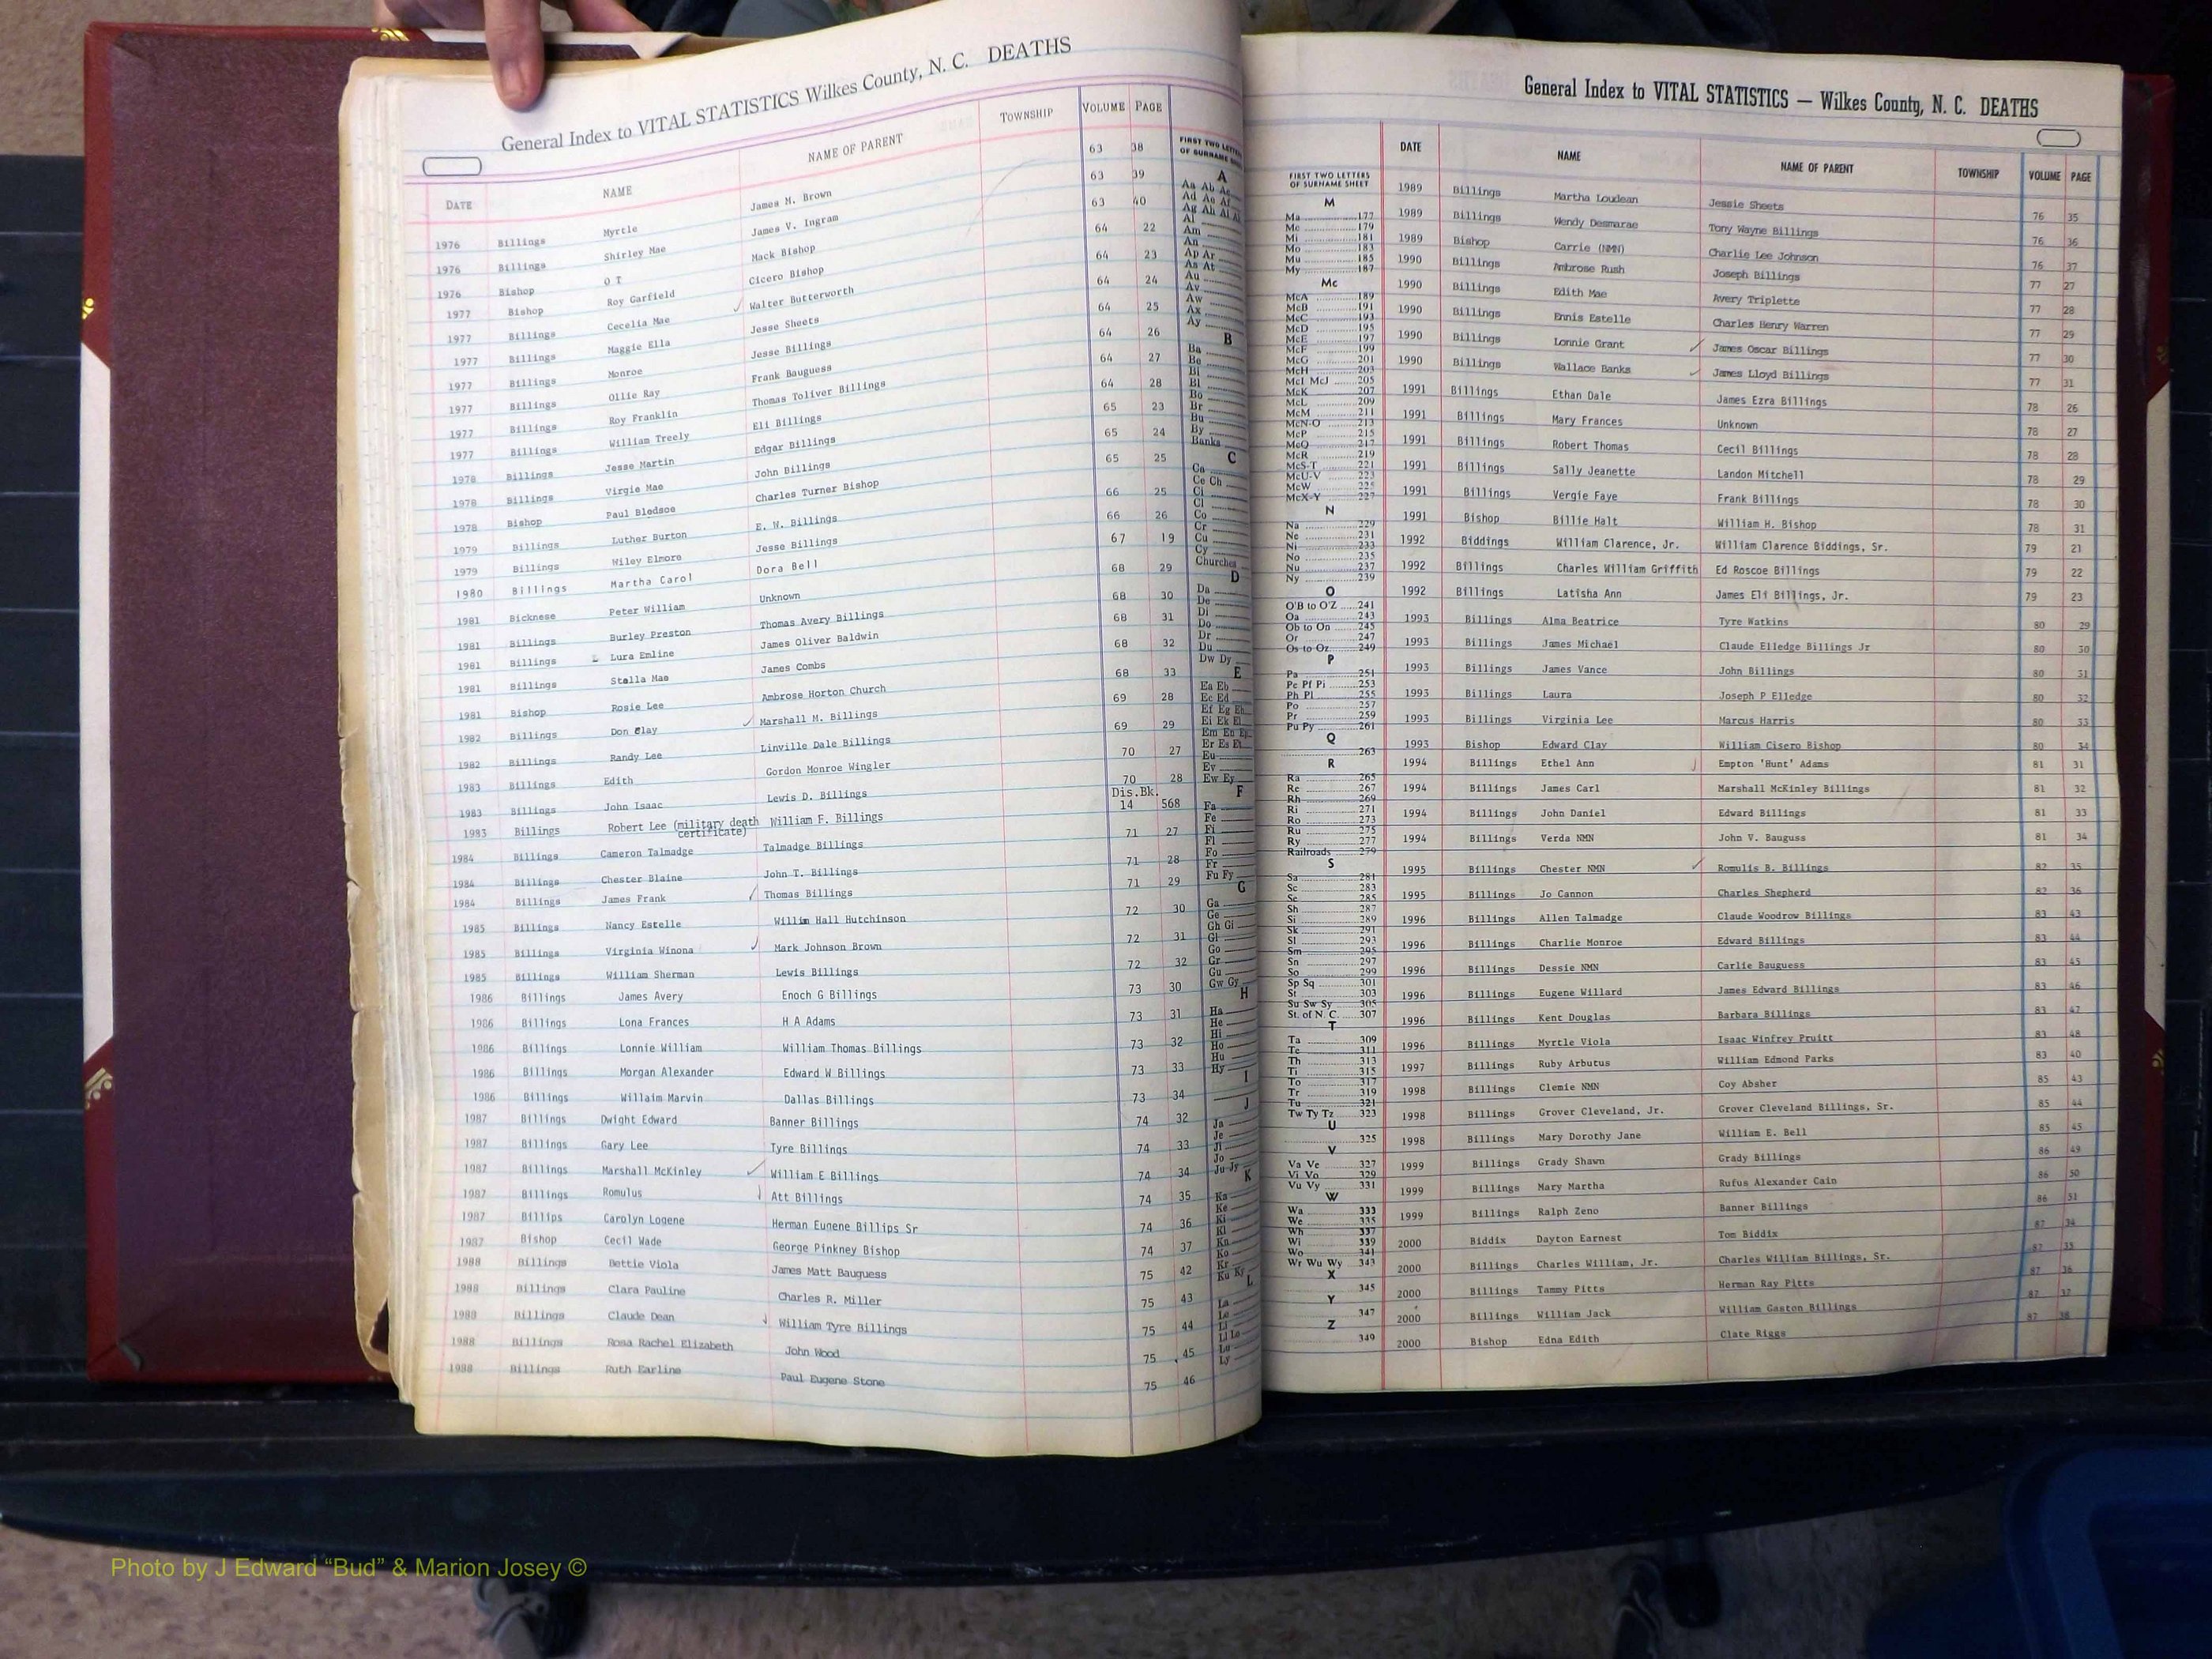 General Index to VITAL STATISTICS Wilkes County, N. C. DEATHS
DATE NAME NAME OF PARENT TOWNSHIP VOLUME PAGE
1976 Billings Myrtle James M. Brown 63 38
1976 Billings Shirley Mae James V. Ingram 63 39
1976 Bishop O T Mack Bishop 63 40
1977 Bishop Roy Garfield Cicero Bishop 64 22
1977 Billings Cecelia Mae ✓ Walter Butterworth 64 23
1977 Billings Maggie Ella Jesse Sheets 64 24
1977 Billings Monroe Jesse Billings 64 25
1977 Billings Ollie Ray Frank Bauguess 64 26
1977 Billings Roy Franklin Thomas Toliver Billings 64 27
1977 Billings William Treely Eli Billings 64 28
1978 Billings Jesse Martin Edgar Billings 65 23
1978 Billings Virgie Mae John Billings 65 24
1978 Bishop Paul Bledsoe Charles Turner Bishop 65 25
1979 Billings Luther Burton E. W. Billings 66 25
1979 Billings Wiley Elmore Jesse Billings 66 26
1980 Billings Martha Carol Dora Bell 67 19
1981 Bicknese Peter William Unknown 68 29
1981 Billings Burley Preston Thomas Avery Billings 68 30
1981 Billings Lura Emline James Oliver Baldwin 68 31
1981 Billings Stella Mae James Combs 68 32
1981 Bishop Rosie Lee Ambrose Horton Church 68 33
1982 Billings Don Clay ✓ Marshall M. Billings 69 28
1982 Billings Randy Lee Linville Dale Billings 69 29
1983 Billings Edith Gordon Monroe Wingler 70 27
1983 Billings John Isaac Lewis D. Billings 70 28
1983 Billings Robert Lee (military death certificate) William F. Billings Dis.Bk. 14 568
1984 Billings Cameron Talmadge Talmadge Billings 71 27
1984 Billings Chester Blaine John T. Billings 71 28
1984 Billings James Frank ✓ Thomas Billings 71 29
1985 Billings Nancy Estelle Willim Hall Hutchinson 72 30
1985 Billings Virginia Winona ✓ Mark Johnson Brown 72 31
1985 Billings William Sherman Lewis Billings 72 32
1986 Billings James Avery Enoch G Billings 73 30
1986 Billings Lona Frances H A Adams 73 31
1986 Billings Lonnie William William Thomas Billings 73 32
1986 Billings Morgan Alexander Edward W Billings 73 33
1986 Billings Willaim Marvin Dallas Billings 73 34
1987 Billings Dwight Edward Banner Billings 74 32
1987 Billings Gary Lee Tyre Billings 74 33
1987 Billings Marshall McKinley ✓ William E Billings 74 34
1987 Billings Romulus ✓ Att Billings 74 35
1987 Billips Carolyn Logene Herman Eugene Billips Sr 74 36
1987 Bishop Cecil Wade George Pinkney Bishop 74 37
1988 Billings Bettie Viola James Matt Bauguess 75 42
1988 Billings Clara Pauline Charles R. Miller 75 43
1988 Billings Claude Dean ✓ William Tyre Billings 75 44
1988 Billings Rosa Rachel Elizabeth John Wood 75 45
1988 Billings Ruth Earline Paul Eugene Stone 75 46
FIRST TWO LETTERS
OF SURNAME
A
Aa Ab Ac
Ad Ae Af
Ag Ah Ai
Al
Am
An
Ap Ar
As At
Au
Av
Aw
Ax
Ay
B
Ba
Be
Bi
Bl
Bo
Br
Bu
By
Banks
C
Ca
Ce Ch
Ci
Cl
Co
Cr
Cu
Cy
Churches
D
Da
De
Di
Do
Dr
Du
Dw Dy
E
Ea Eb
Ec Ed
Ef Eg Eh
Ei Ek El
Em En Ep
Er Es Et
Eu
Ev
Ew Ey
F
Fa
Fe
Fi
Fl
Fo
Fr
Fu Fy
G
Ga
Ge
Gh Gi
Gl
Go
Gr
Gu
Gw Gy
H
Ha
He
Hi
Ho
Hu
Hy
I
J
Ja
Je
Ji
Jo
Ju Jy
K
Ka
Ke
Ki
Kl
Kn
Ko
Kr
Ku Ky
L
La
Le
Li
Ll Lo
Lu
Ly
General Index to VITAL STATISTICS — Wilkes County, N. C. DEATHS
FIRST TWO LETTERS
OF SURNAME SHEET
M
Ma 177
Me 179
Mi 181
Mo 183
Mu 185
My 187
Mc
McA 189
McB 191
McC 193
McD 195
McE 197
McF 199
McG 201
McH 203
McI McJ 205
McK 207
McL 209
McM 211
McN-O 213
McP 215
McQ 217
McR 219
McS-T 221
McU-V 223
McW 225
McX-Y 227
N
Na 229
Ne 231
Ni 233
No 235
Nu 237
Ny 239
O
O'B to O'Z 241
Oa 243
Ob to On 245
Or 247
Os to Oz 249
P
Pa 251
Pe Pf Pi 253
Ph Pl 255
Po 257
Pr 259
Pu Py 261
Q
263
R
Ra 265
Re 267
Rh 269
Ri 271
Ro 273
Ru 275
Ry 277
Railroads 279
S
Sa 281
Sc 283
Se 285
Sh 287
Si 289
Sk 291
Sl 293
Sm 295
Sn 297
So 299
Sp Sq 301
St 303
Su Sw Sy 305
St. of N. C. 307
T
Ta 309
Te 311
Th 313
Ti 315
To 317
Tr 319
Tu 321
Tw Ty Tz 323
U
325
V
Va Ve 327
Vi Vo 329
Vu Vy 331
W
Wa 333
We 335
Wh 337
Wi 339
Wo 341
Wr Wu Wy 343
X
345
Y
347
Z
349
DATE NAME NAME OF PARENT TOWNSHIP VOLUME PAGE
1989 Billings Martha Loudean Jessie Sheets 76 35
1989 Billings Wendy Desmarae Tony Wayne Billings 76 36
1989 Bishop Carrie (NMN) Charlie Lee Johnson 76 37
1990 Billings Ambrose Rush Joseph Billings 77 27
1990 Billings Edith Mae Avery Triplette 77 28
1990 Billings Ennis Estelle Charles Henry Warren 77 29
1990 Billings Lonnie Grant ✓ James Oscar Billings 77 30
1990 Billings Wallace Banks ✓ James Lloyd Billings 77 31
1991 Billings Ethan Dale James Ezra Billings 78 26
1991 Billings Mary Frances Unknown 78 27
1991 Billings Robert Thomas Cecil Billings 78 28
1991 Billings Sally Jeanette Landon Mitchell 78 29
1991 Billings Vergie Faye Frank Billings 78 30
1991 Bishop Billie Halt William H. Bishop 78 31
1992 Biddings William Clarence, Jr. William Clarence Biddings, Sr. 79 21
1992 Billings Charles William Griffith Ed Roscoe Billings 79 22
1992 Billings Latisha Ann James Eli Billings, Jr. 79 23
1993 Billings Alma Beatrice Tyre Watkins 80 29
1993 Billings James Michael Claude Elledge Billings Jr 80 30
1993 Billings James Vance John Billings 80 31
1993 Billings Laura Joseph P Elledge 80 32
1993 Billings Virginia Lee Marcus Harris 80 33
1993 Bishop Edward Clay William Cisero Bishop 80 34
1994 Billings Ethel Ann ✓ Empton 'Hunt' Adams 81 31
1994 Billings James Carl Marshall McKinley Billings 81 32
1994 Billings John Daniel Edward Billings 81 33
1994 Billings Verda NMN John V. Bauguss 81 34
1995 Billings Chester NMN ✓ Romulis B. Billings 82 35
1995 Billings Jo Cannon Charles Shepherd 82 36
1996 Billings Allen Talmadge Claude Woodrow Billings 83 43
1996 Billings Charlie Monroe Edward Billings 83 44
1996 Billings Dessie NMN Carlie Bauguess 83 45
1996 Billings Eugene Willard James Edward Billings 83 46
1996 Billings Kent Douglas Barbara Billings 83 47
1996 Billings Myrtle Viola Isaac Winfrey Pruitt 83 48
1997 Billings Ruby Arbutus William Edmond Parks 83 40
1998 Billings Clemie NMN Coy Absher 85 43
1998 Billings Grover Cleveland, Jr. Grover Cleveland Billings, Sr. 85 44
1998 Billings Mary Dorothy Jane William E. Bell 85 45
1999 Billings Grady Shawn Grady Billings 86 49
1999 Billings Mary Martha Rufus Alexander Cain 86 50
1999 Billings Ralph Zeno Banner Billings 86 51
2000 Biddix Dayton Earnest Tom Biddix 87 34
2000 Billings Charles William, Jr. Charles William Billings, Sr. 87 35
2000 Billings Tammy Pitts Herman Ray Pitts 87 36
2000 Billings William Jack William Gaston Billings 87 37
2000 Bishop Edna Edith Clate Riggs 87 38
Photo by J Edward “Bud” & Marion Josey ©